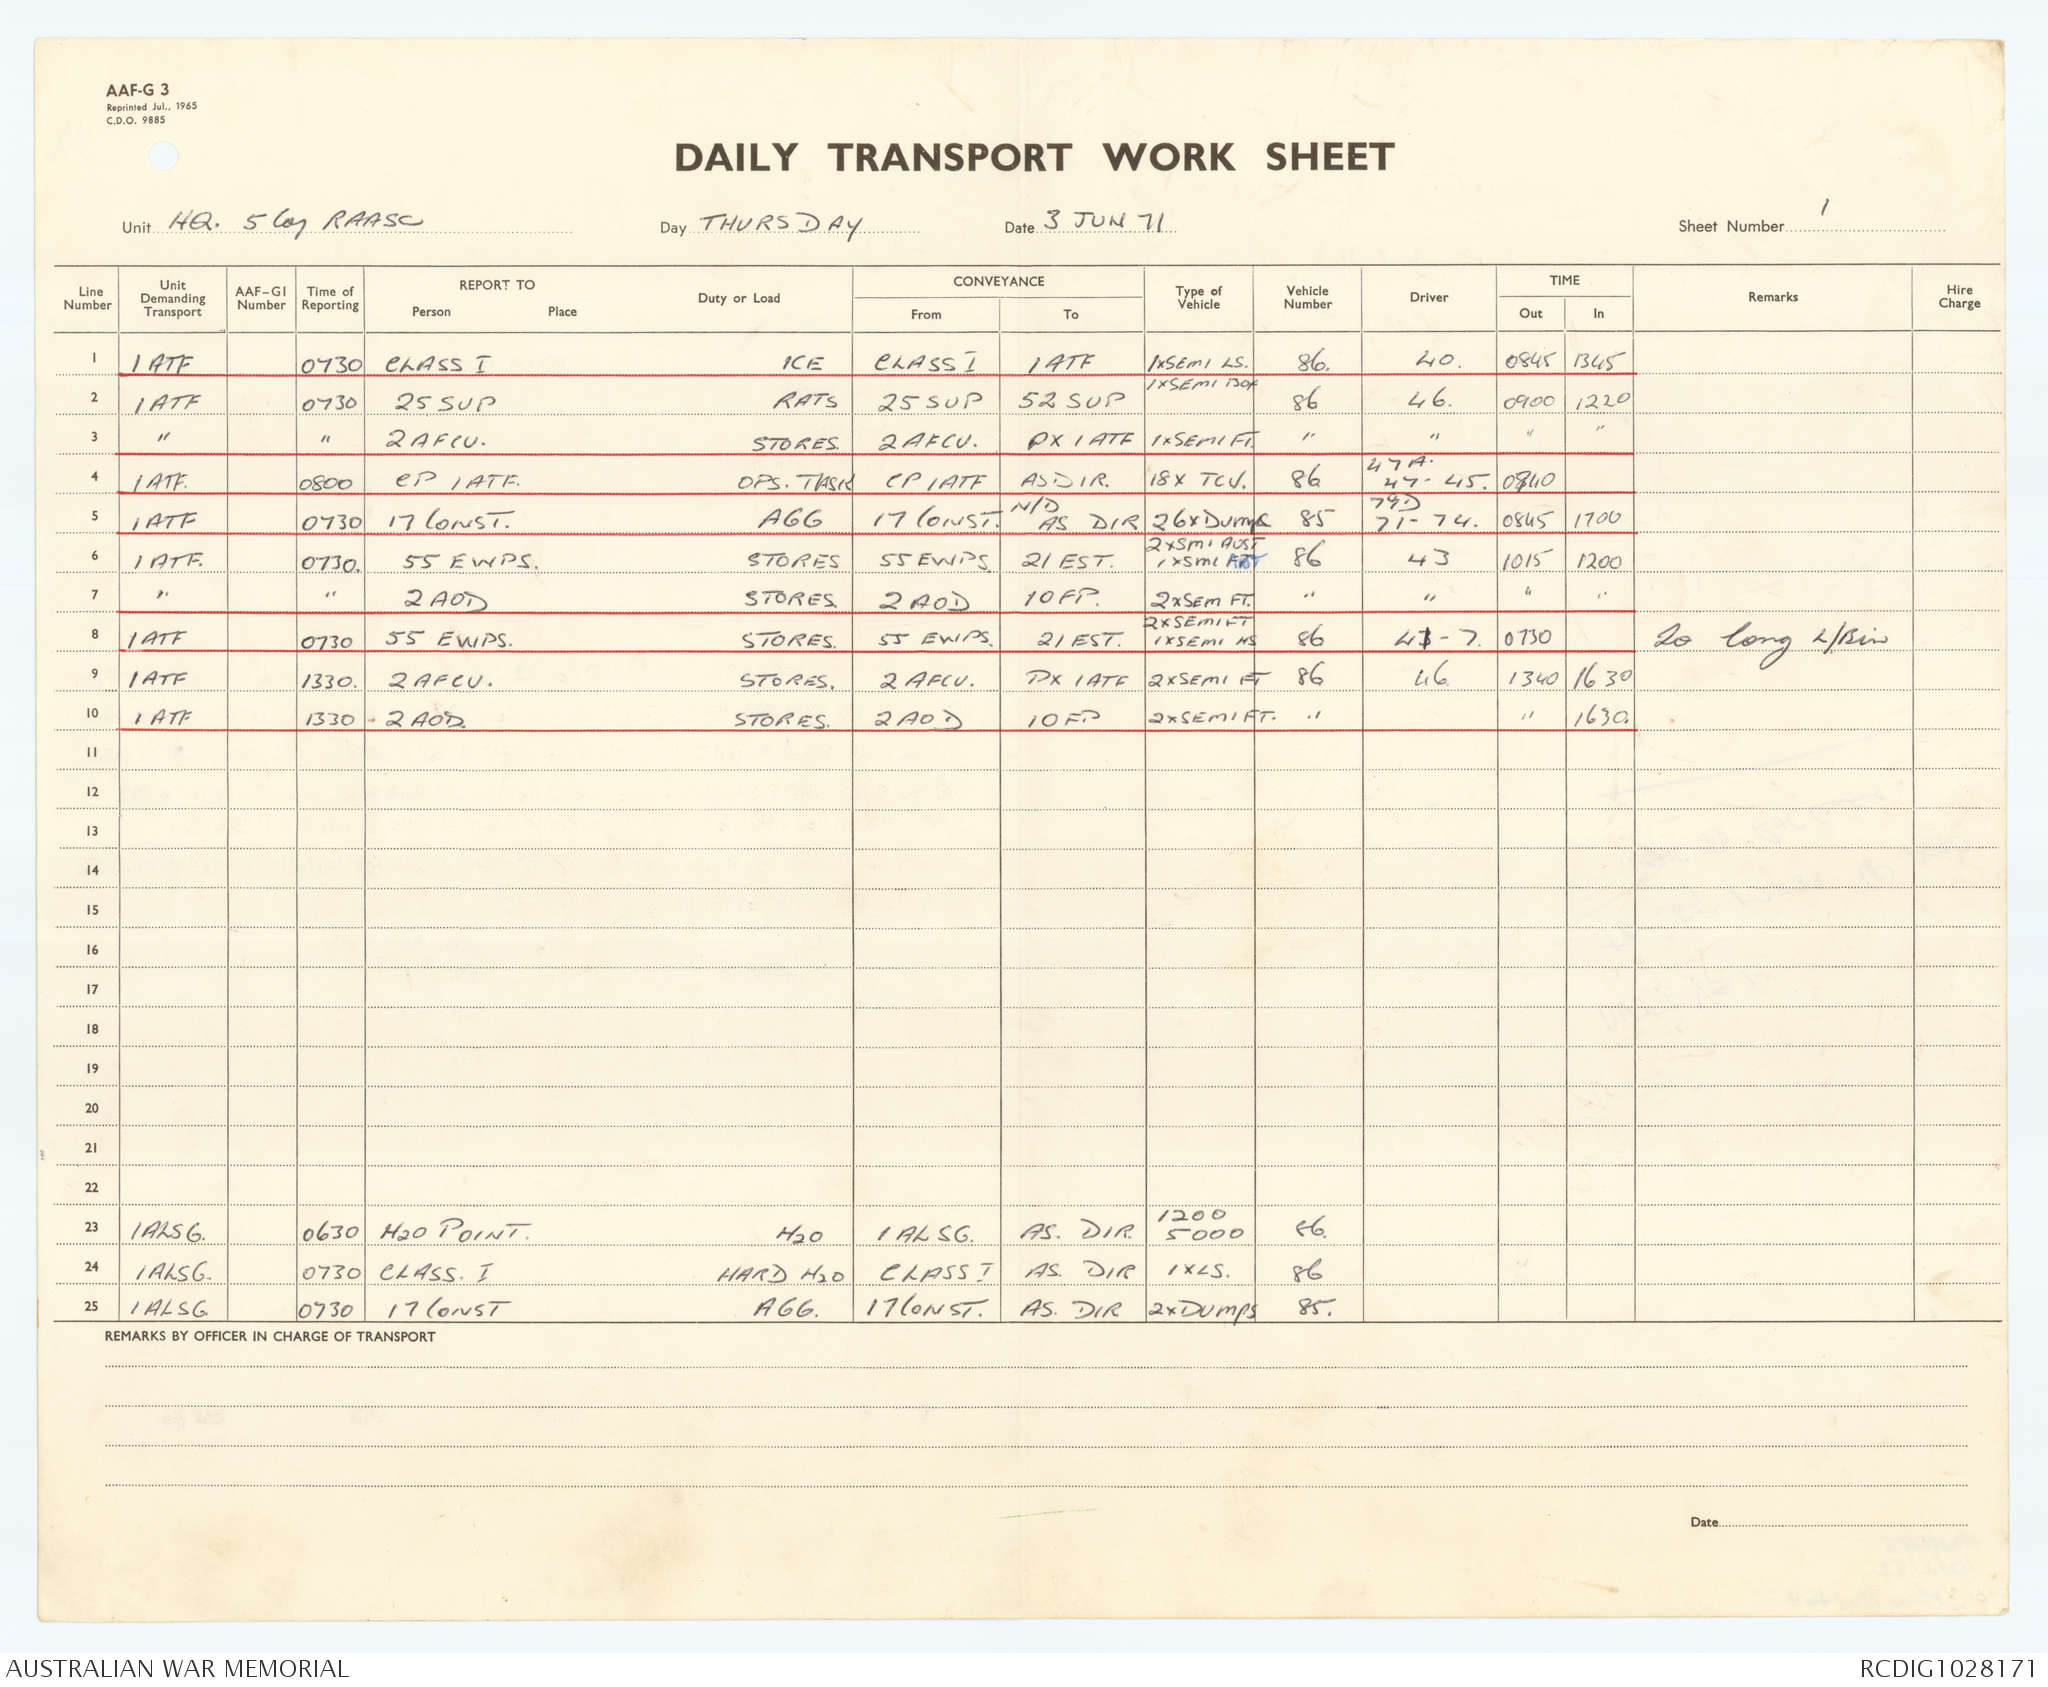 AAF-G 3
Reprinted Jul., 1965
C.D.O. 9885
DAILY TRANSPORT WORK SHEET
Unit HQ. 5 Coy RAASC Day THURSDAY Date 3 JUN 71 Sheet Number 1
Line Number Unit Demanding Transport AAF-G1 Number Time of Reporting REPORT TO Person Place Duty or Load CONVEYANCE From To Type of Vehicle Vehicle Number Driver TIME Out In Remarks Hire Charge
1 1 ATF 0730 CLASS I ICE CLASS I 1 ATF 1xSEMI LS. 86. 40. 0845 1345
2 1 ATF 0730 25 SUP RATS 25 SUP 52 SUP 1xSEMI BOX 86 46. 0900 1220
3 " " 2 AFCU. STORES 2 AFCU. PX 1 ATF 1xSEMI FT. " " " "
4 1 ATF. 0800 CP 1 ATF. OPS. TASK CP 1 ATF AS DIR. 18x TCV. 86 47A. 47- 45. 0840
5 1 ATF 0730 17 CONST. AGG 17 CONST. N/D AS DIR 26xDumps 85 79D 71- 74. 0845 1700
6 1 ATF. 0730. 55 EWPS. STORES 55 EWPS. 21 EST. 2xSMI AUST 1xSMI 86 43 1015 1200
7 " " 2 AOD STORES. 2 AOD 10 FP. 2xSEM FT. " " " "
8 1 ATF 0730 55 EWPS. STORES. 55 EWPS. 21 EST. 2xSEMI FT 1xSEMI HS 86 - 7. 0730 Lo long L/Bin
9 1 ATF 1330. 2 AFCU. STORES. 2 AFCU. PX 1 ATF 2xSEMI FT 86 46. 1340 1630
10 1 ATF 1330 2 AOD. STORES. 2 AOD 10 FP 2xSEMI FT. " " 1630.
11
12
13
14
15
16
17
18
19
20
21
22
23 1 ALSG. 0630 H2O POINT. H2O 1 ALSG. AS. DIR. 1200 5000 86.
24 1 ALSG. 0730 CLASS. I HARD H2O CLASS I AS. DIR 1xLS. 86
25 1 ALSG. 0730 17 CONST AGG. 17 CONST. AS. DIR 2xDUMPS 85.
REMARKS BY OFFICER IN CHARGE OF TRANSPORT
Date
AUSTRALIAN WAR MEMORIAL RCDIG1028171